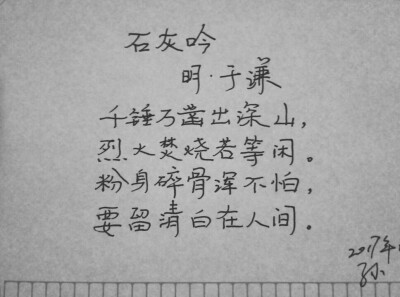 石灰吟
明·于谦
千锤万凿出深山，
烈火焚烧若等闲。
粉身碎骨浑不怕，
要留清白在人间。
2017年
孙